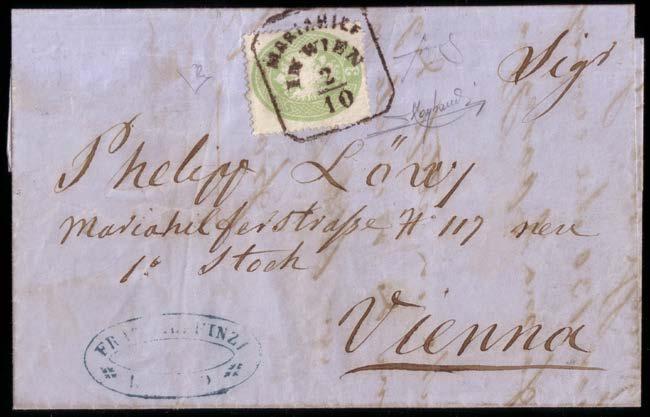 MARIAHILF
IN WIEN
2/10
Sigr
Philipp Löwy
Mariahilferstraße N 117 neu
1º Stock
Vienna
FINZI